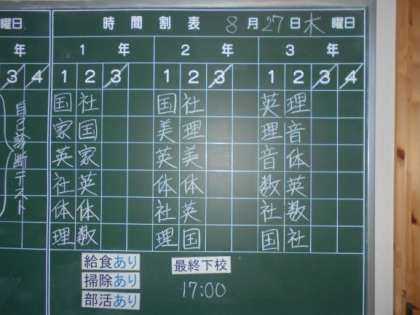 曜日 時間割表 8月27日木曜日
年 1年 2年 3年
3 4 1 2 3 1 2 3 1 2 3 4
自己診断テスト
国 社 国 社 英 理
家 国 美 理 理 音
英 家 英 美 音 体
社 英 体 体 数 英
体 体 社 英 社 数
理 数 理 国 国 社
給食あり 最終下校
掃除あり 17:00
部活あり